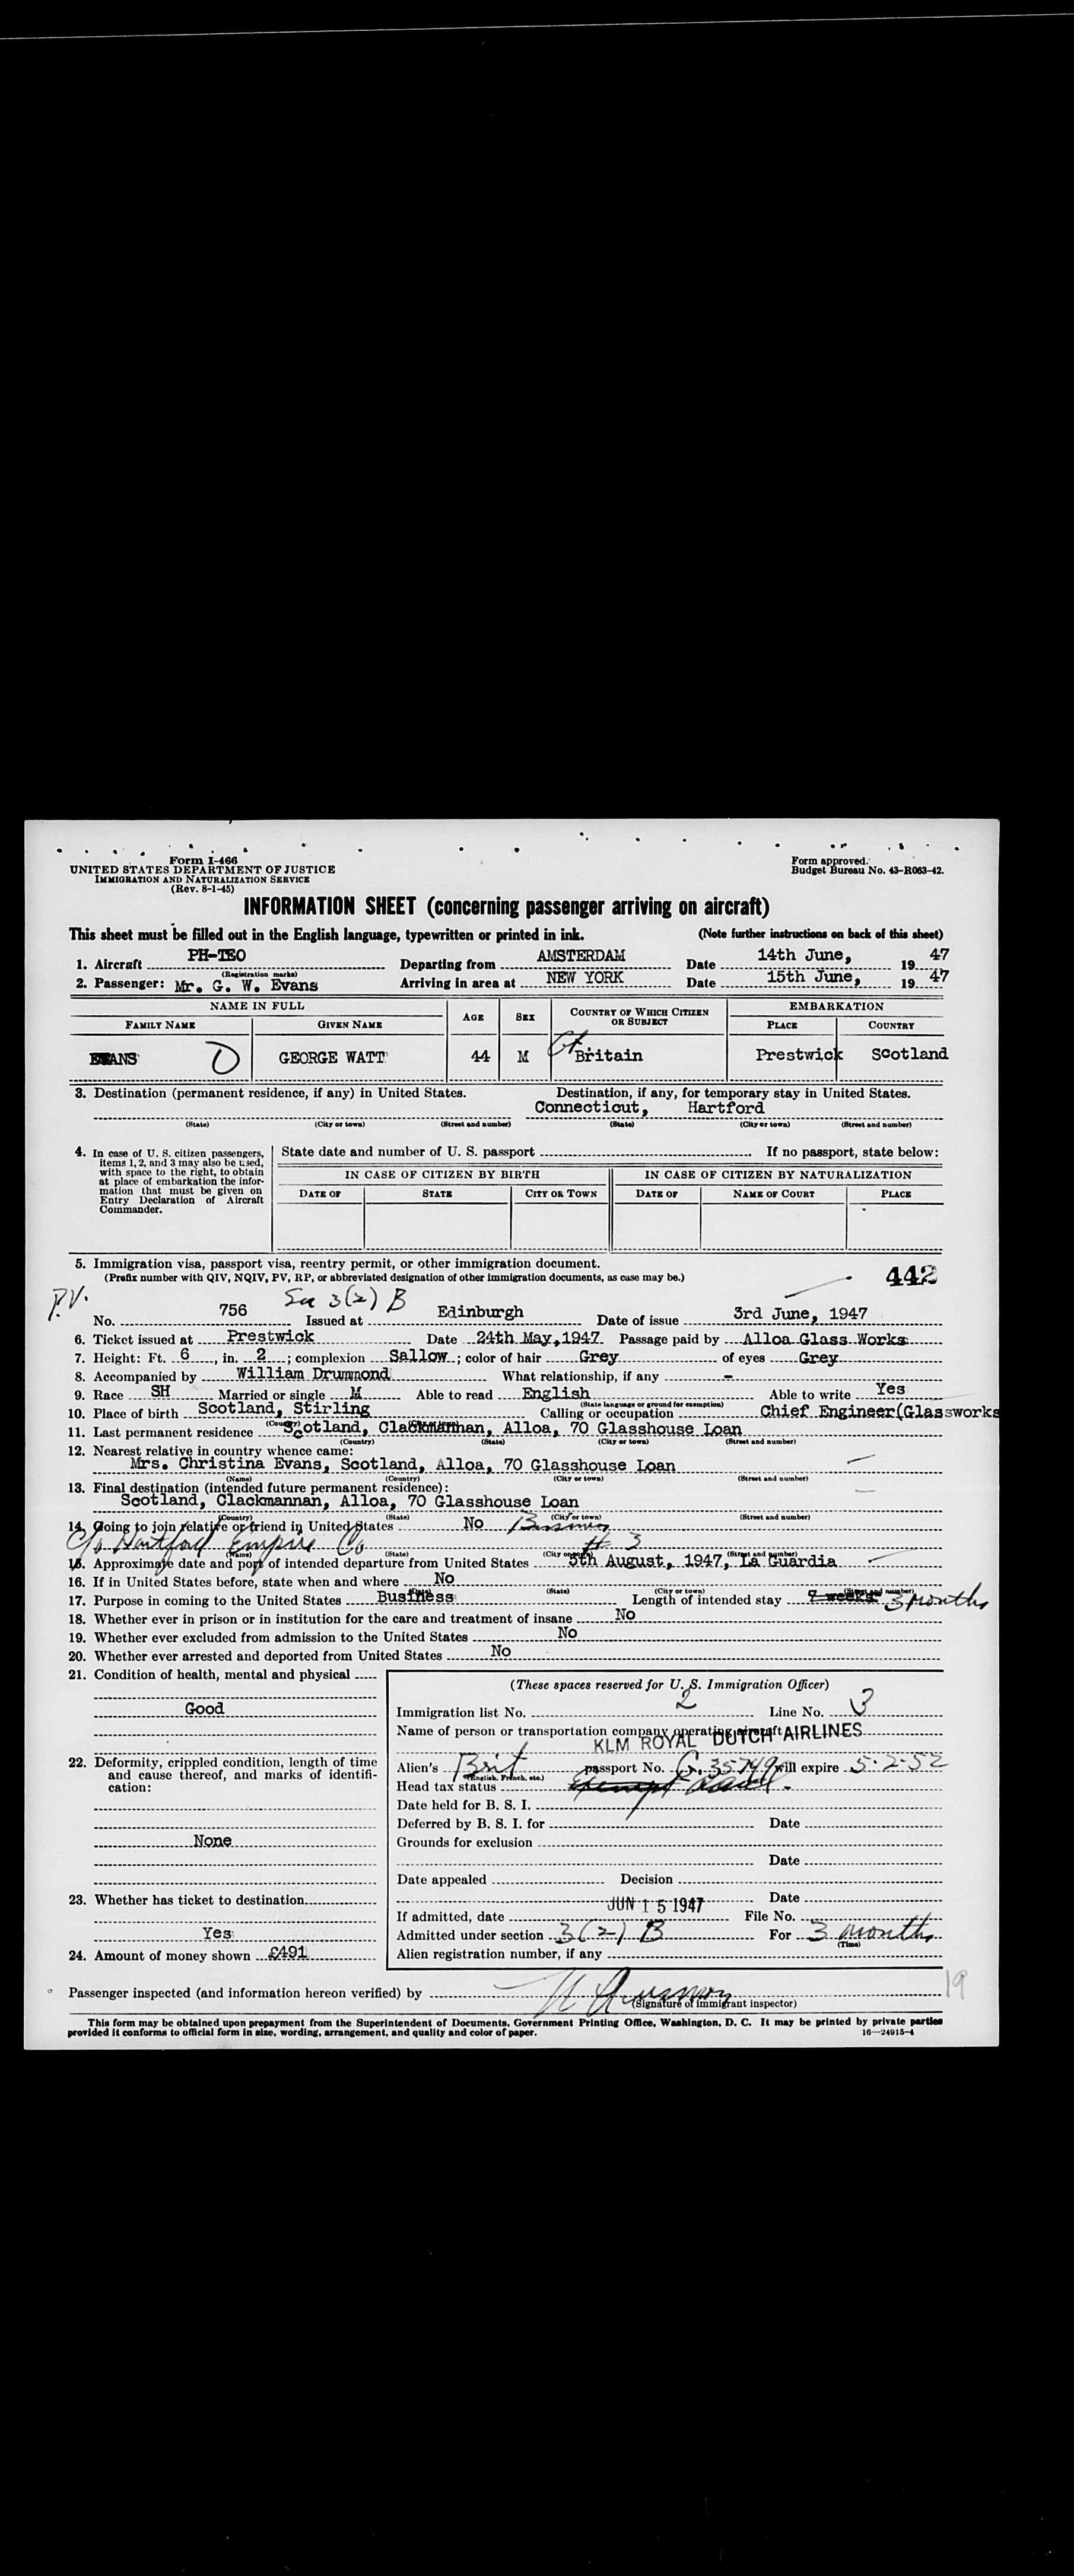 Form I-466
UNITED STATES DEPARTMENT OF JUSTICE
IMMIGRATION AND NATURALIZATION SERVICE
(Rev. 8-1-45)
Form approved.
Budget Bureau No. 43-R063-42.
INFORMATION SHEET (concerning passenger arriving on aircraft)
This sheet must be filled out in the English language, typewritten or printed in ink. (Note further instructions on back of this sheet)
1. Aircraft PH-TEO Departing from AMSTERDAM Date 14th June, 19 47
(Registration marks)
2. Passenger: Mr. G. W. Evans Arriving in area at NEW YORK Date 15th June, 19 47
NAME IN FULL AGE SEX COUNTRY OF WHICH CITIZEN OR SUBJECT EMBARKATION
FAMILY NAME GIVEN NAME PLACE COUNTRY
EVANS D GEORGE WATT 44 M Gt Britain Prestwick Scotland
3. Destination (permanent residence, if any) in United States. Destination, if any, for temporary stay in United States.
Connecticut, Hartford
(State) (City or town) (Street and number) (State) (City or town) (Street and number)
4. In case of U. S. citizen passengers, items 1, 2, and 3 may also be used, with space to the right, to obtain at place of embarkation the information that must be given on Entry Declaration of Aircraft Commander.
State date and number of U. S. passport If no passport, state below:
IN CASE OF CITIZEN BY BIRTH IN CASE OF CITIZEN BY NATURALIZATION
DATE OF STATE CITY OR TOWN DATE OF NAME OF COURT PLACE
5. Immigration visa, passport visa, reentry permit, or other immigration document.
(Prefix number with QIV, NQIV, PV, RP, or abbreviated designation of other immigration documents, as case may be.) 442
P.V. 3(2) B
No. 756 Issued at Edinburgh Date of issue 3rd June, 1947
6. Ticket issued at Prestwick Date 24th May, 1947 Passage paid by Alloa Glass Works
7. Height: Ft. 6, in. 2; complexion Sallow; color of hair Grey of eyes Grey
8. Accompanied by William Drummond What relationship, if any -
9. Race SH Married or single M Able to read English Able to write Yes
(State language or ground for exemption)
10. Place of birth Scotland, Stirling Calling or occupation Chief Engineer(Glassworks
(Country) (City or town)
11. Last permanent residence Scotland, Clackmannan, Alloa, 70 Glasshouse Loan
(Country) (State) (City or town) (Street and number)
12. Nearest relative in country whence came:
Mrs. Christina Evans, Scotland, Alloa, 70 Glasshouse Loan
(Name) (Country) (City or town) (Street and number)
13. Final destination (intended future permanent residence):
Scotland, Clackmannan, Alloa, 70 Glasshouse Loan
(Country) (State) (City or town) (Street and number)
14. Going to join relative or friend in United States No Business
C/o Hartford Empire Co # 3
(Name) (State) (City or town) (Street and number)
15. Approximate date and port of intended departure from United States 5th August, 1947, La Guardia
16. If in United States before, state when and where No
(Date) (State) (City or town) (Street and number)
17. Purpose in coming to the United States Business Length of intended stay 7 weeks 3 months
18. Whether ever in prison or in institution for the care and treatment of insane No
19. Whether ever excluded from admission to the United States No
20. Whether ever arrested and deported from United States No
21. Condition of health, mental and physical
Good
22. Deformity, crippled condition, length of time and cause thereof, and marks of identification:
None
23. Whether has ticket to destination
Yes
24. Amount of money shown £491
(These spaces reserved for U. S. Immigration Officer)
Immigration list No. 2 Line No. 3
Name of person or transportation company operating aircraft
KLM ROYAL DUTCH AIRLINES
Alien's Brit passport No. C.35749 will expire 5-2-52
(English, French, etc.)
Head tax status exempt
Date held for B. S. I.
Deferred by B. S. I. for Date
Grounds for exclusion
Date
Date appealed Decision
Date
If admitted, date JUN 15 1947 File No.
Admitted under section 3(2) B For 3 months
(Time)
Alien registration number, if any
Passenger inspected (and information hereon verified) by 19
(Signature of immigrant inspector)
This form may be obtained upon prepayment from the Superintendent of Documents, Government Printing Office, Washington, D. C. It may be printed by private parties
provided it conforms to official form in size, wording, arrangement, and quality and color of paper. 16—24915-4